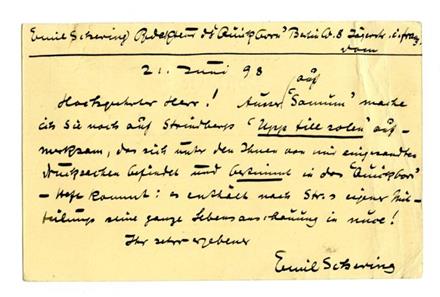 Emil Schering Redakteur d. "Quickborn" Berlin W. 8
21. Juni 98
auf
Hochgeehrter Herr! Ausser "Samum" mache
ich Sie noch auf Strindbergs "Upp till solen" auf-
merksam, das sich unter den Ihnen von mir eingesandten
Drucksachen befindet und bestimmt in das "Quickborn"
-Heft kommt: es enthält nach Str.s eigner Mit-
teilung seine ganze Lebensanschauung in nuce!
Ihr sehr ergebener
Emil Schering